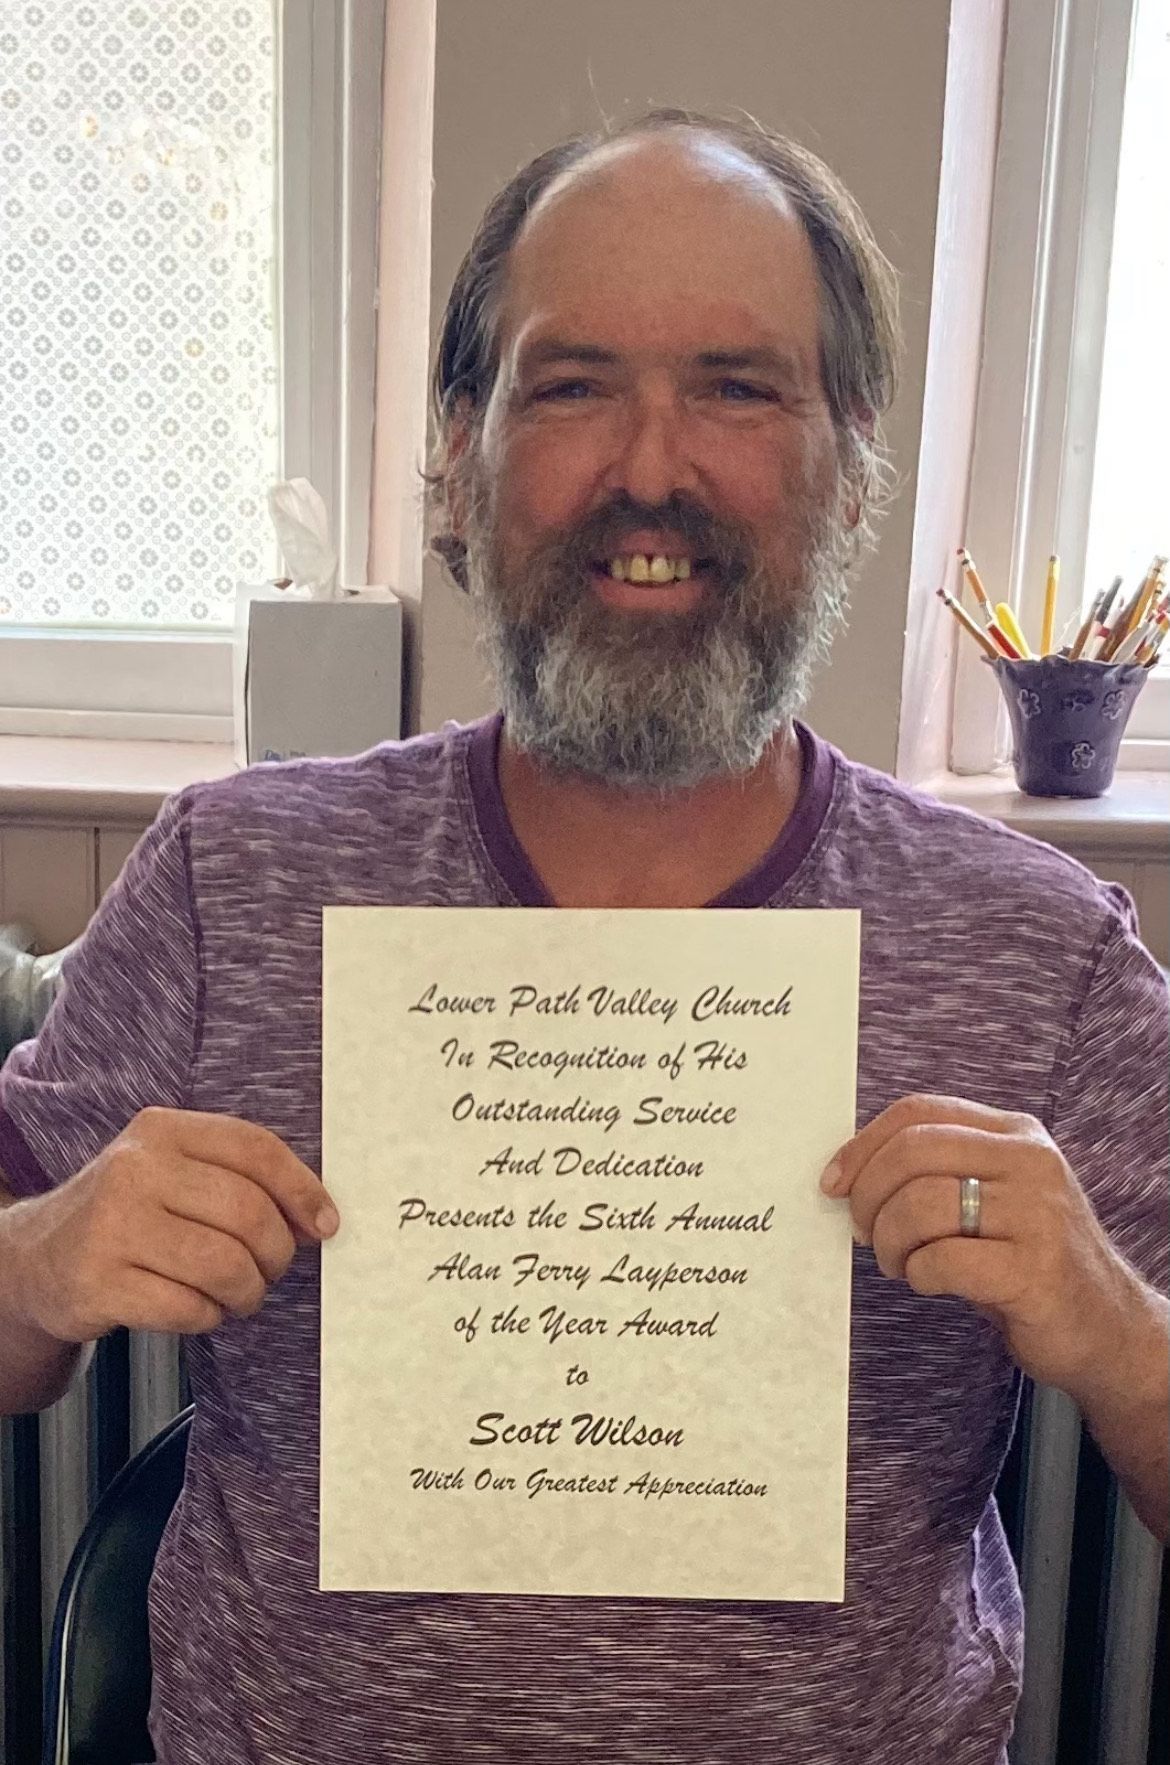 Lower Path Valley Church
In Recognition of His
Outstanding Service
And Dedication
Presents the Sixth Annual
Alan Ferry Layperson
of the Year Award
to
Scott Wilson
With Our Greatest Appreciation